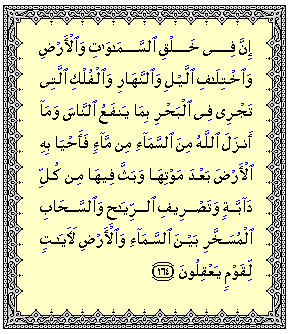 إِنَّ فِى خَلْقِ ٱلسَّمَـٰوَٰتِ وَٱلْأَرْضِ
وَٱخْتِلَـٰفِ ٱلَّيْلِ وَٱلنَّهَارِ وَٱلْفُلْكِ ٱلَّتِى
تَجْرِى فِى ٱلْبَحْرِ بِمَا يَنفَعُ ٱلنَّاسَ وَمَآ
أَنزَلَ ٱللَّهُ مِنَ ٱلسَّمَآءِ مِن مَّآءٍ فَأَحْيَا بِهِ
ٱلْأَرْضَ بَعْدَ مَوْتِهَا وَبَثَّ فِيهَا مِن كُلِّ
دَآبَّةٍ وَتَصْرِيفِ ٱلرِّيَـٰحِ وَٱلسَّحَابِ
ٱلْمُسَخَّرِ بَيْنَ ٱلسَّمَآءِ وَٱلْأَرْضِ لَـَٔايَـٰتٍ
لِّقَوْمٍ يَعْقِلُونَ ١٦٤